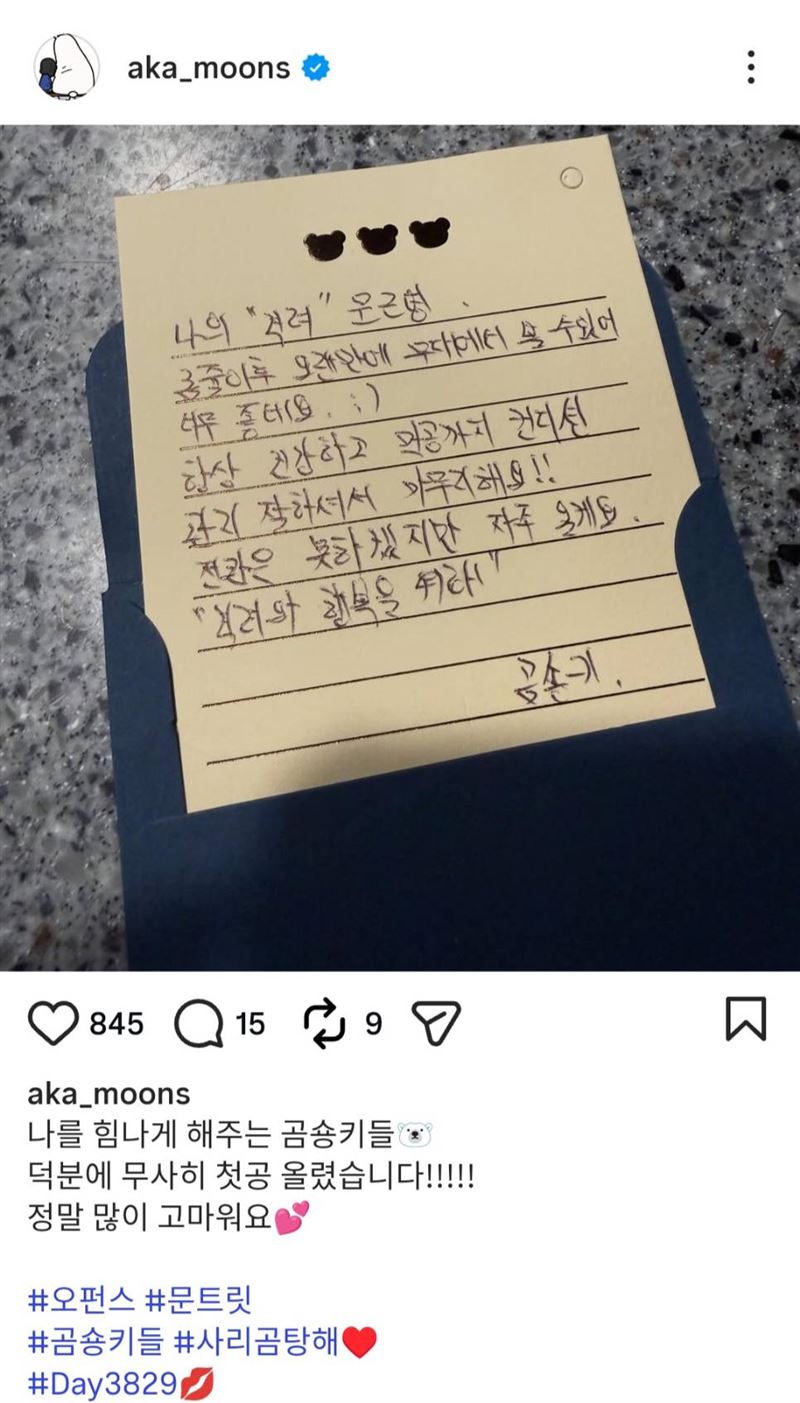 aka_moons
나의 "격려" 문근형.
곰줄이후 오랜만에 무대에서 볼 수있어
너무 좋네요. :)
항상 건강하고 막공까지 컨디션
관리 잘하셔서 마무리해요!!
전관은 못하겠지만 자주 올게요.
"격려와 행복을 위라!"
곰숑키.
845 15 9
aka_moons
나를 힘나게 해주는 곰숑키들🐻‍❄️
덕분에 무사히 첫공 올렸습니다!!!!!
정말 많이 고마워요💕
#오펀스 #문트릿
#곰숑키들 #사리곰탕해❤️
#Day3829💋